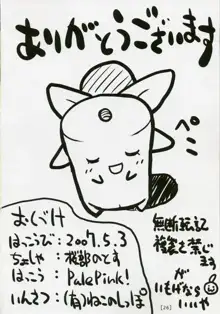 ありがとうございます
ペこ
おくづけ
はっこうび：2007.5.3
ちょしゃ：桜部のとす
はっこう：PalePink!
いんさつ：(有)ねこのしっぽ
無断転記
複写を禁じ
ます
が
いそげなら
いいや